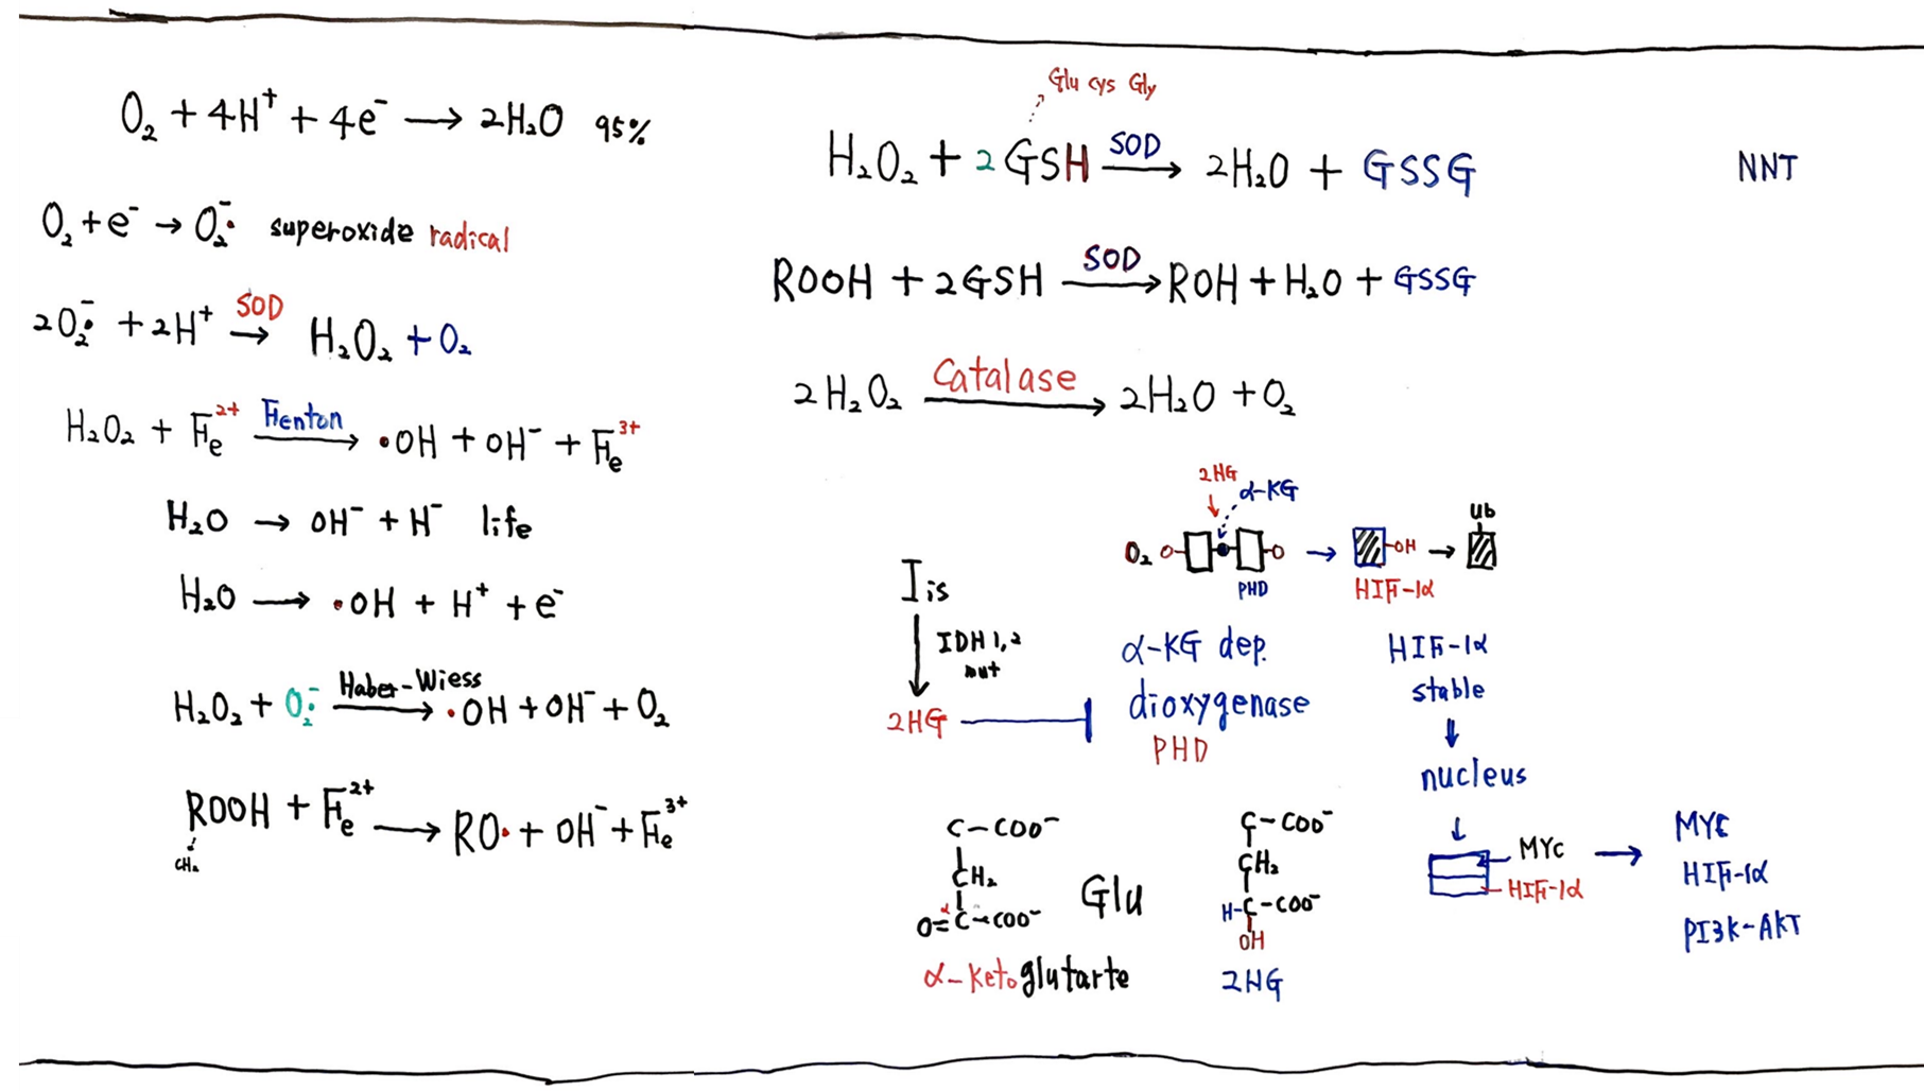 O₂ + 4H⁺ + 4e⁻ → 2H₂O 95%
O₂ + e⁻ → O₂⁻• superoxide radical
2O₂⁻• + 2H⁺ SOD → H₂O₂ + O₂
H₂O₂ + Fe²⁺ Fenton → •OH + OH⁻ + Fe³⁺
H₂O → OH⁻ + H⁻ life
H₂O → •OH + H⁺ + e⁻
H₂O₂ + O₂⁻• Haber-Wiess → •OH + OH⁻ + O₂
ROOH + Fe²⁺ → RO• + OH⁻ + Fe³⁺
CH₂
Glu cys Gly
H₂O₂ + 2GSH SOD → 2H₂O + GSSG
NNT
ROOH + 2GSH SOD → ROH + H₂O + GSSG
2H₂O₂ Catalase → 2H₂O + O₂
2HG
α-KG
O₂
PHD
→
OH
HIF-1α
→
Ub
Iis
↓
IDH1,2
mut
2HG
α-KG dep.
dioxygenase
PHD
HIF-1α
stable
↓
nucleus
↓
MYC
HIF-1α
→
MYC
HIF-1α
PI3K-AKT
C-COO⁻
CH₂
α
O=C-COO⁻
Glu
α-ketoglutarte
C-COO⁻
CH₂
H-C-COO⁻
OH
2HG